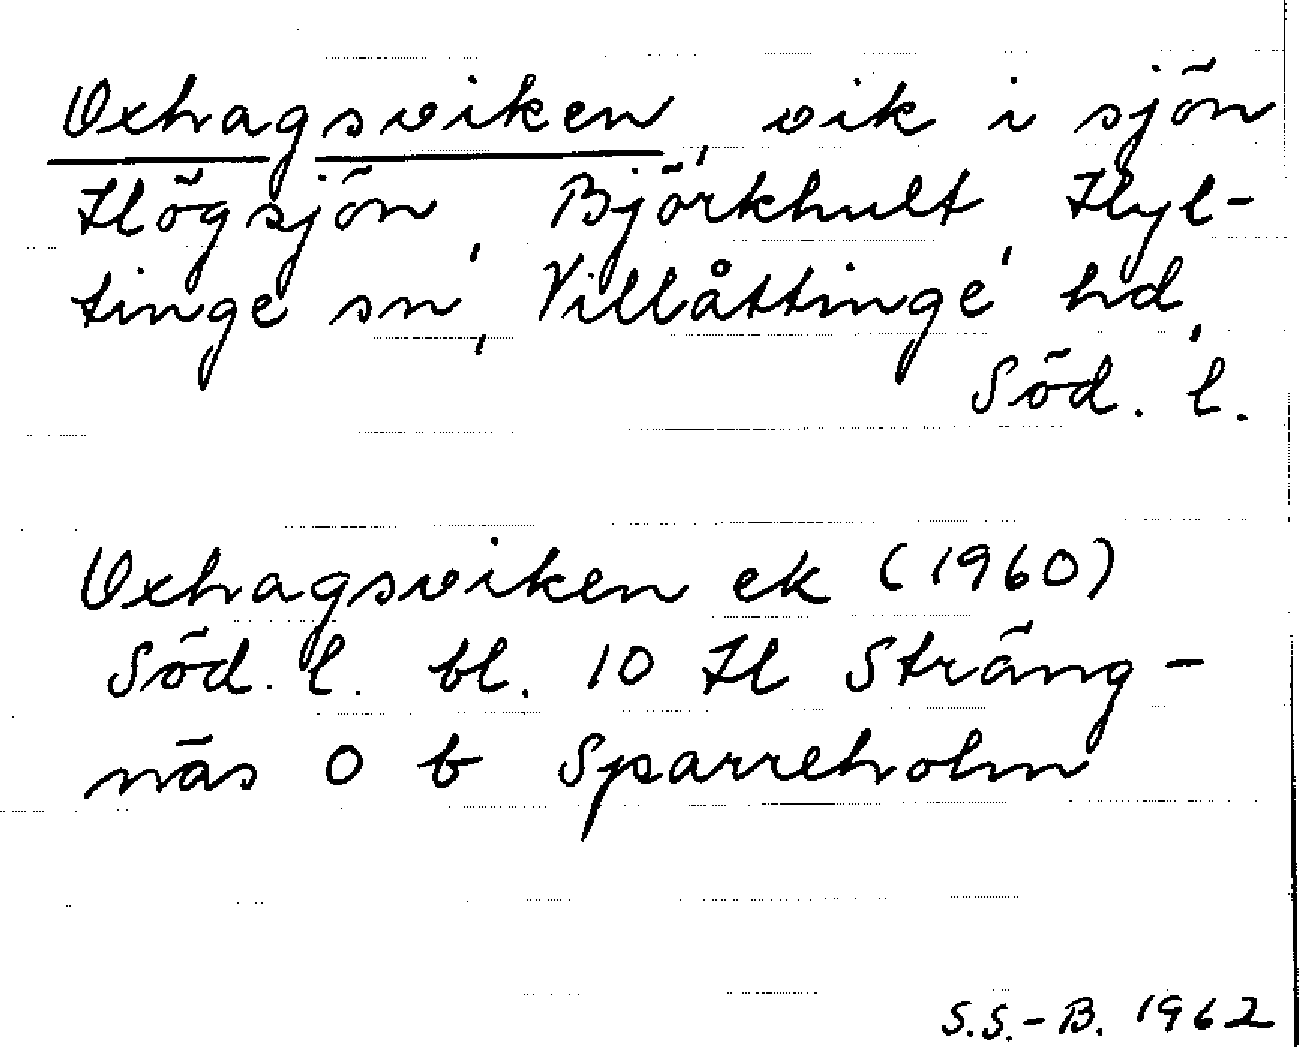 Oxhagsviken, vik i sjön
Högsjön, Björkhult, Hyl-
tinge sn, Villåttinge hd,
Söd. l.
Oxhagsviken ek (1960)
Söd. l. bl. 10 H Sträng-
näs 0 b Sparreholm
S.S.-B. 1962